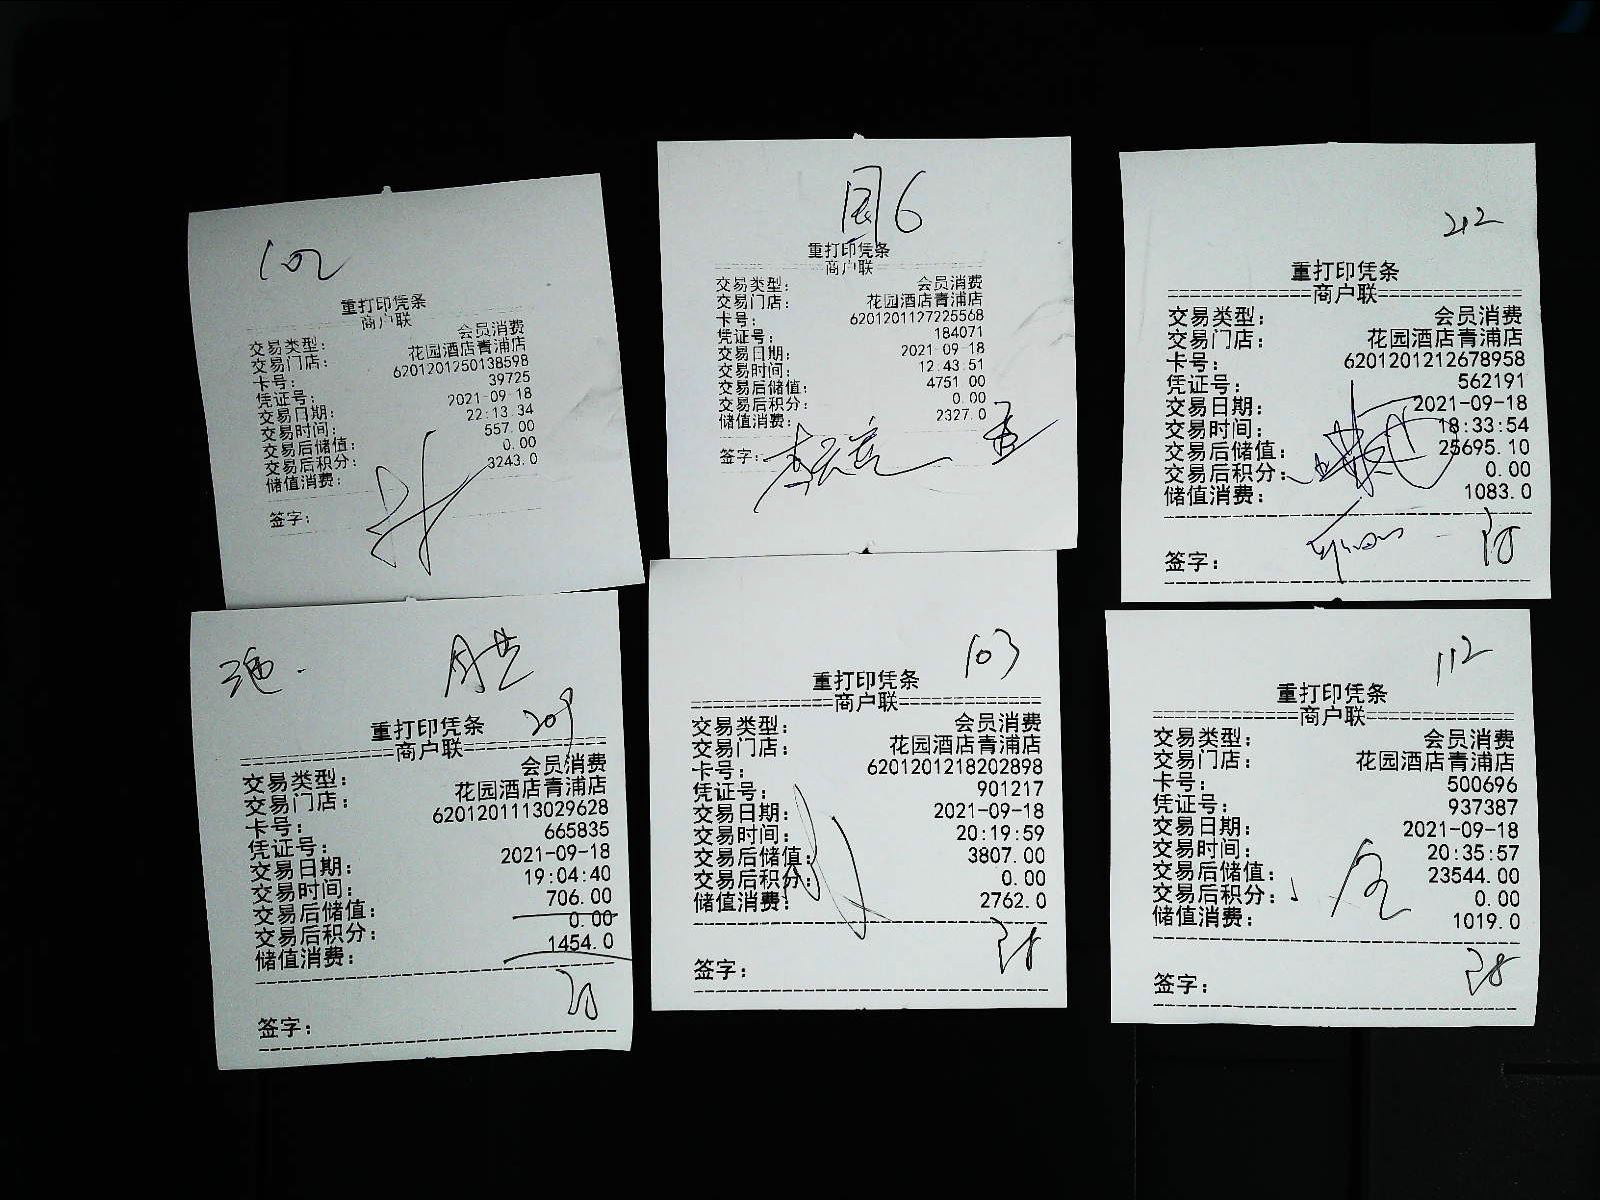 102
重打印凭条
商户联
交易类型： 会员消费
交易门店： 花园酒店青浦店
卡号： 6201201250138598
凭证号： 39725
交易日期： 2021-09-18
交易时间： 22:13:34
交易后储值： 557.00
交易后积分： 0.00
储值消费： 3243.0
签字：
国6
重打印凭条
商户联
交易类型： 会员消费
交易门店： 花园酒店青浦店
卡号： 6201201127225568
凭证号： 184071
交易日期： 2021-09-18
交易时间： 12:43:51
交易后储值： 4751.00
交易后积分： 0.00
储值消费： 2327.0
签字：
212
重打印凭条
商户联
交易类型： 会员消费
交易门店： 花园酒店青浦店
卡号： 6201201212678958
凭证号： 562191
交易日期： 2021-09-18
交易时间： 18:33:54
交易后储值： 25695.10
交易后积分： 0.00
储值消费： 1083.0
签字：
209
重打印凭条
商户联
交易类型： 会员消费
交易门店： 花园酒店青浦店
卡号： 6201201113029628
凭证号： 665835
交易日期： 2021-09-18
交易时间： 19:04:40
交易后储值： 706.00
交易后积分： 0.00
储值消费： 1454.0
签字：
103
重打印凭条
商户联
交易类型： 会员消费
交易门店： 花园酒店青浦店
卡号： 6201201218202898
凭证号： 901217
交易日期： 2021-09-18
交易时间： 20:19:59
交易后储值： 3807.00
交易后积分： 0.00
储值消费： 2762.0
签字：
112
重打印凭条
商户联
交易类型： 会员消费
交易门店： 花园酒店青浦店
卡号： 500696
凭证号： 937387
交易日期： 2021-09-18
交易时间： 20:35:57
交易后储值： 23544.00
交易后积分： 0.00
储值消费： 1019.0
签字：